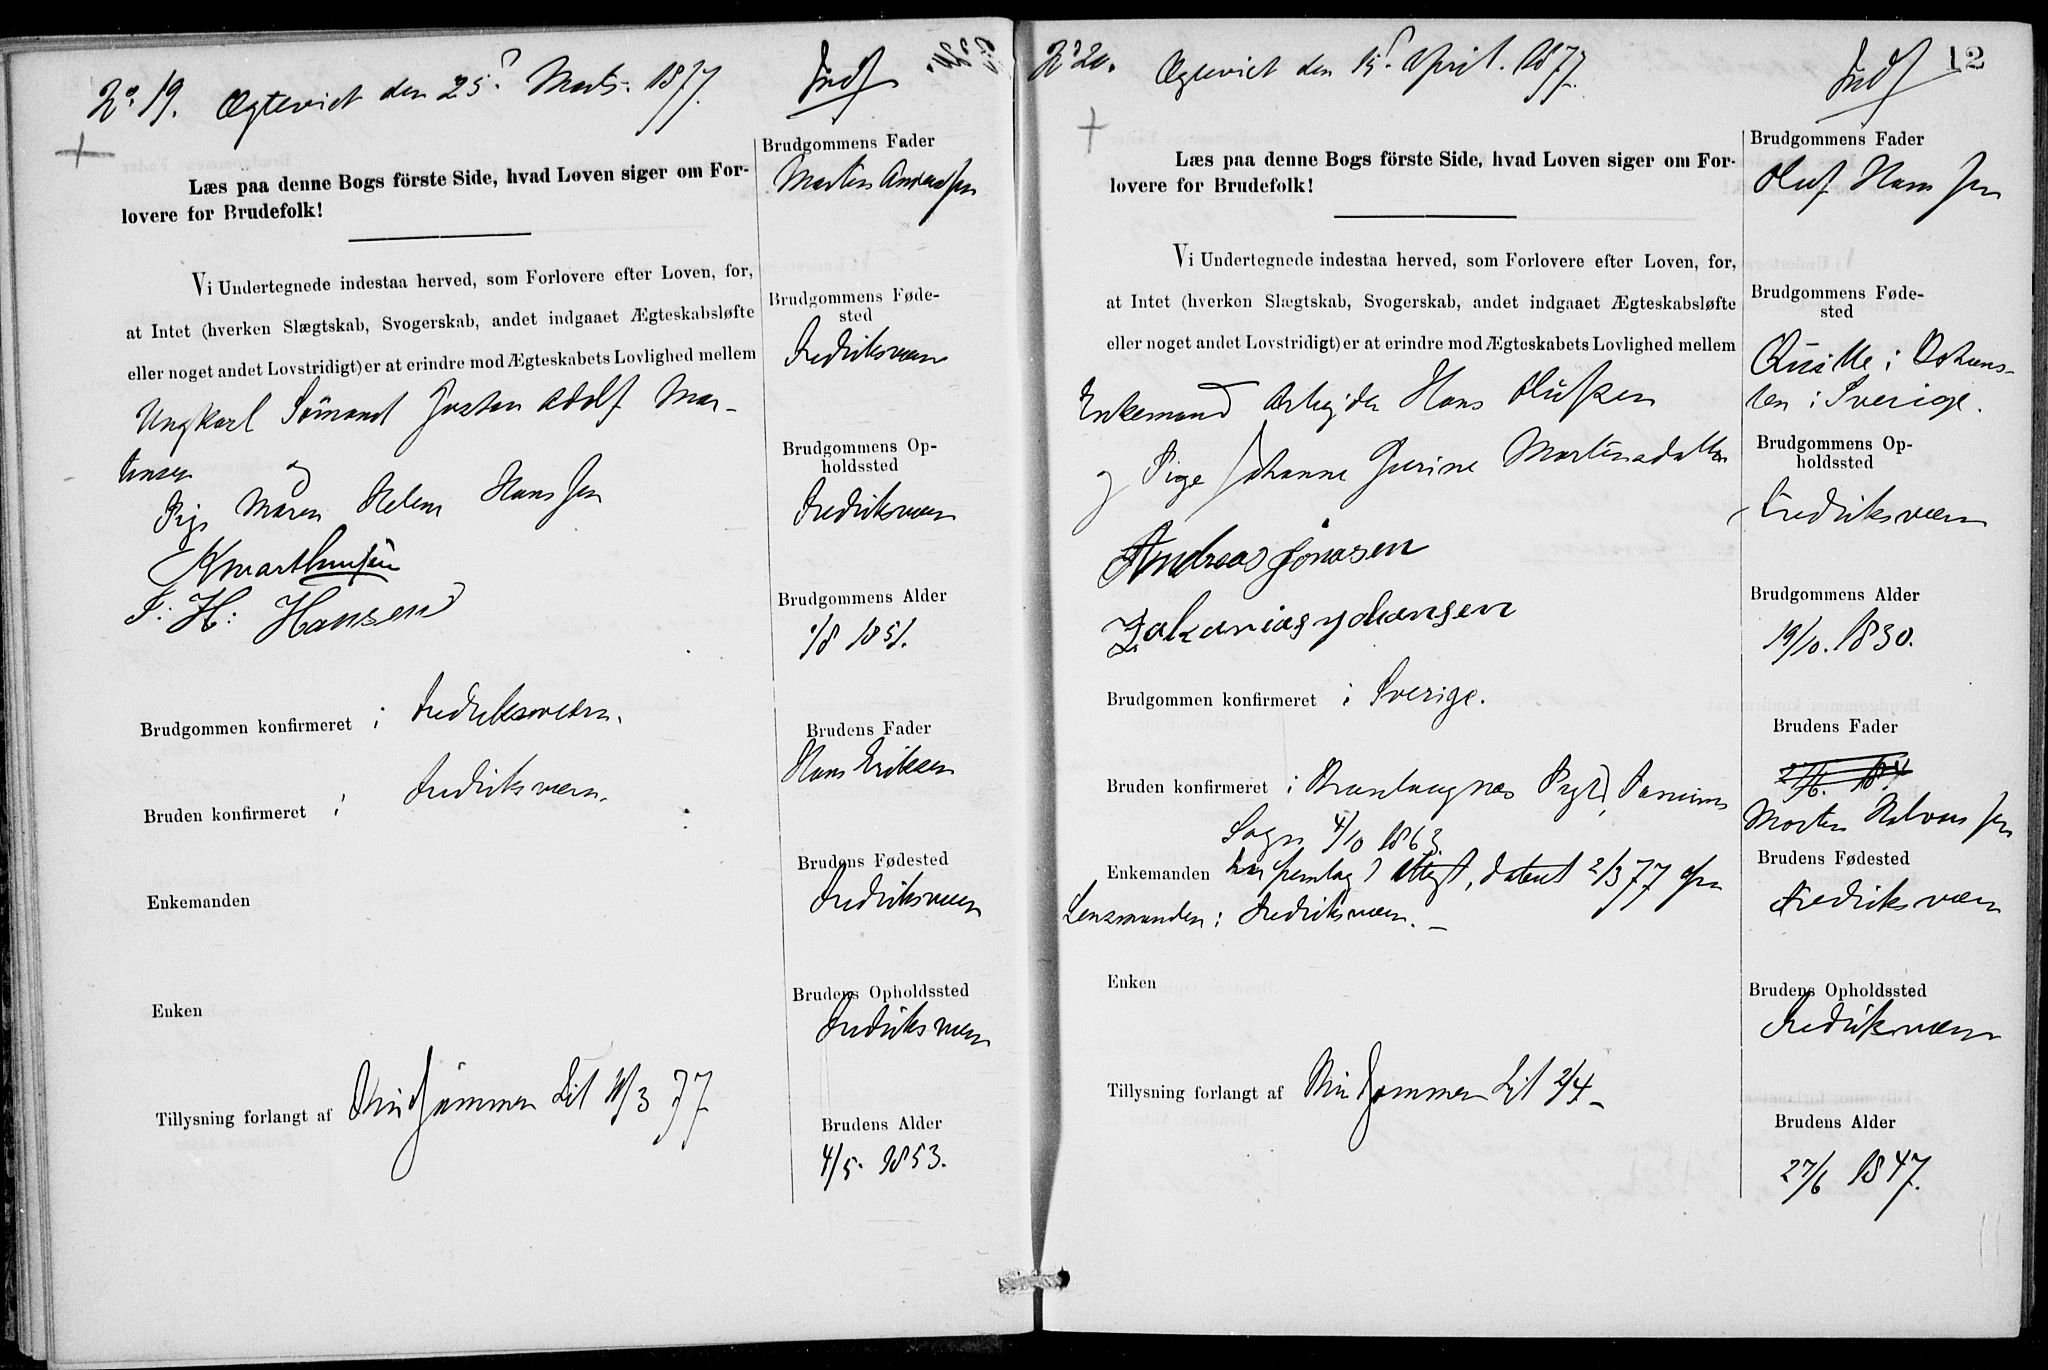 No 19. Ægteviet den 25de Marts 1877.
Indf
Læs paa denne Bogs förste Side, hvad Loven siger om For-
lovere for Brudefolk!
Vi Undertegnede indestaa herved, som Forlovere efter Loven, for,
at Intet (hverken Slægtskab, Svogerskab, andet indgaaet Ægteskabsløfte
eller noget andet Lovstridigt) er at erindre mod Ægteskabets Lovlighed mellem
Ungkarl Sömand Adolf Mar-
tinsen og
Pige Maren Helene Hanssen
F: H: Hansen
Brudgommen konfirmeret i Fredriksværn.
Bruden konfirmeret i Fredriksværn.
Enkemanden
Enken
Tillysning forlangt af Brudgommen Lit 11/3 77
Brudgommens Fader
Morten Anderssen
Brudgommens Føde-
sted
Fredriksværn
Brudgommens Op-
holdssted
Fredriksværn
Brudgommens Alder
1/8 1851.
Brudens Fader
Hans Eriksen
Brudens Fødested
Fredriksværn
Brudens Opholdssted
Fredriksværn
Brudens Alder
4/5. 1853.
No 20. Ægteviet den 15de April. 1877.
Indf
12
Læs paa denne Bogs förste Side, hvad Loven siger om For-
lovere for Brudefolk!
Vi Undertegnede indestaa herved, som Forlovere efter Loven, for,
at Intet (hverken Slægtskab, Svogerskab, andet indgaaet Ægteskabsløfte
eller noget andet Lovstridigt) er at erindre mod Ægteskabets Lovlighed mellem
Enkemand Arbejder Hans Olufsen
og Pige Johanne Gurine Martinsdatter
Andreas Jonasen
Zakarias Johansen
Brudgommen konfirmeret i Sverige.
Bruden konfirmeret i Brunlaugnæs Prgld,
Sogn 4/10 1863
Enkemanden har fremlagt Attest, dateret 2/3 77 fra
Lensmanden i Fredriksværn. –
Enken
Tillysning forlangt af Brudgommen Lit 2/4 –
Brudgommens Fader
Oluf Hanssen
Brudgommens Føde-
sted
i
i Sverige.
Brudgommens Op-
holdssted
Fredriksværn
Brudgommens Alder
19/10. 1830.
Brudens Fader
Morten Halvorssen
Brudens Fødested
Fredriksværn
Brudens Opholdssted
Fredriksværn
Brudens Alder
27/6 1847.